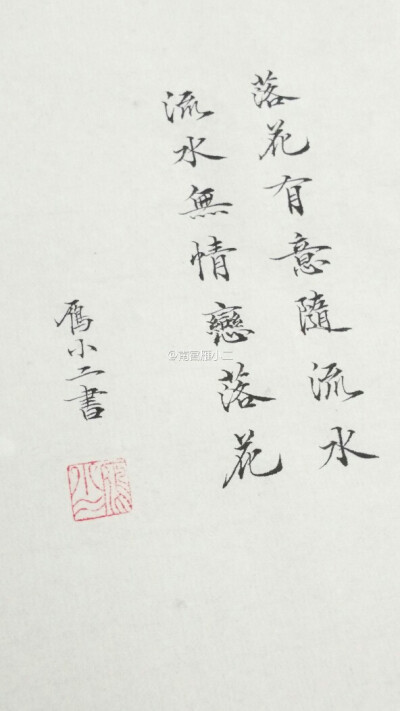 落花有意隨流水
流水無情戀落花
鴈小二書